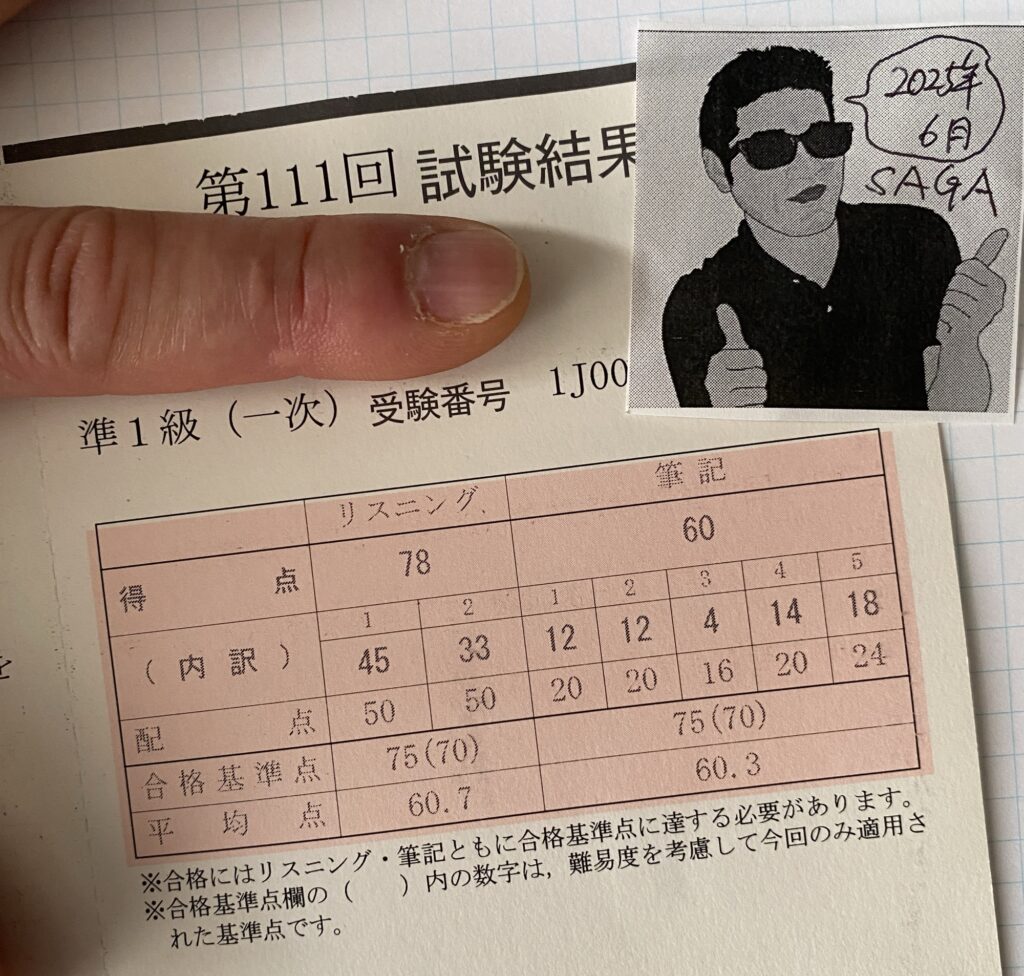 2025年
6月
SAGA
第111回 試験結果
準1級（一次） 受験番号 1J00
リスニング 筆記
得点 78 60
1 2 1 2 3 4 5
（内訳） 45 33 12 12 4 14 18
配点 50 50 20 20 16 20 24
合格基準点 75(70) 75(70)
平均点 60.7 60.3
※合格にはリスニング・筆記ともに合格基準点に達する必要があります。
※合格基準点欄の（　　）内の数字は，難易度を考慮して今回のみ適用さ
れた基準点です。
を